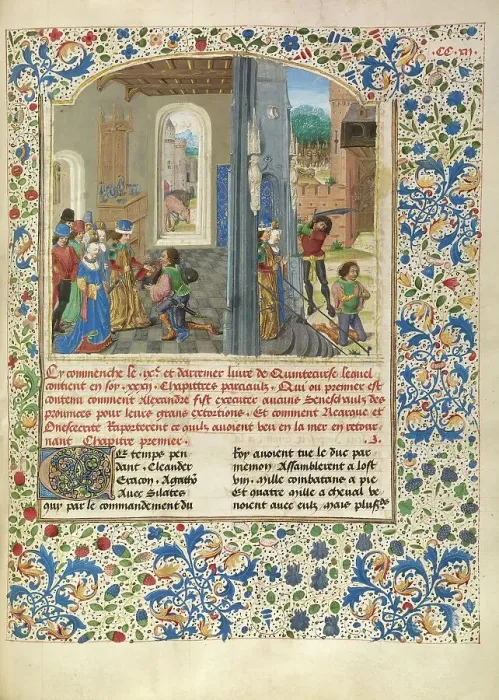 ·CC·xii·
Cy commenche le .ixe. et darrenier livre de Quinte curse lequel
contient en soy .xxxi. Chapittres parciaulx. Qui ou premier est
contenu comment Alexandre fist executer aucuns Seneschaulx des
provinces pour leurs grans extortions. Et comment Nearque et
Onesecrite Raporterent ce quilz avoient veu en la mer en retour
nant Chapitre premier.
En ce temps pen
dant. Cleander
Eracon, Agathon
Avec Silates
qui par le commandement du
Roy avoient tue le duc par
menion Assamblerent a lost
viii. mille combatans a pie
Et quatre mille a cheval ve
noient avec eulx, mais plusrs